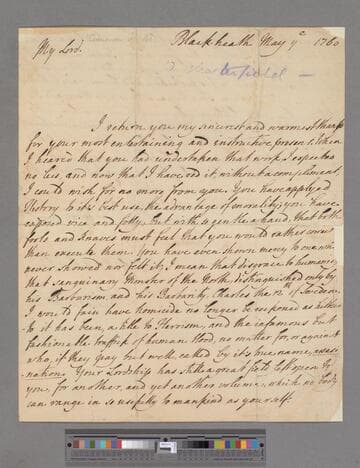 Blackheath May y<sup>e</sup> 1760
My Lord.
I return you my sincerest and warmest thanks
for your most entertaining and instructive present. When
I heard that you had undertaken that work, I expected
no less, and now that I have read it without a compliment,
I could wish for no more from you. You have apply'd
History to it's best use, the advantage of morality; you have
exposed vice and folly, but with so gentle a hand, that both
fools and knaves must feel that you would rather correct
than execute them. You have even shown mercy to one who
never showed nor felt it, I mean that disgrace to humanity
that sanguinary Monster of the North, distinguished only by
his Barbarism and his Bravery, Charles the 12th of Sweden.
I wou'd fain have Homicide no longer be reckoned as hitherto
it has been, a title to Heroism, and the infamous but
fashionable traffick of human blood, no matter for, or against
who, if they pay but well, called by it's true name, assassi-
nation. Your Lordship has still a great part left open to
you, for another, and yet another volume, which no body
can range in so usefully to mankind as your self.